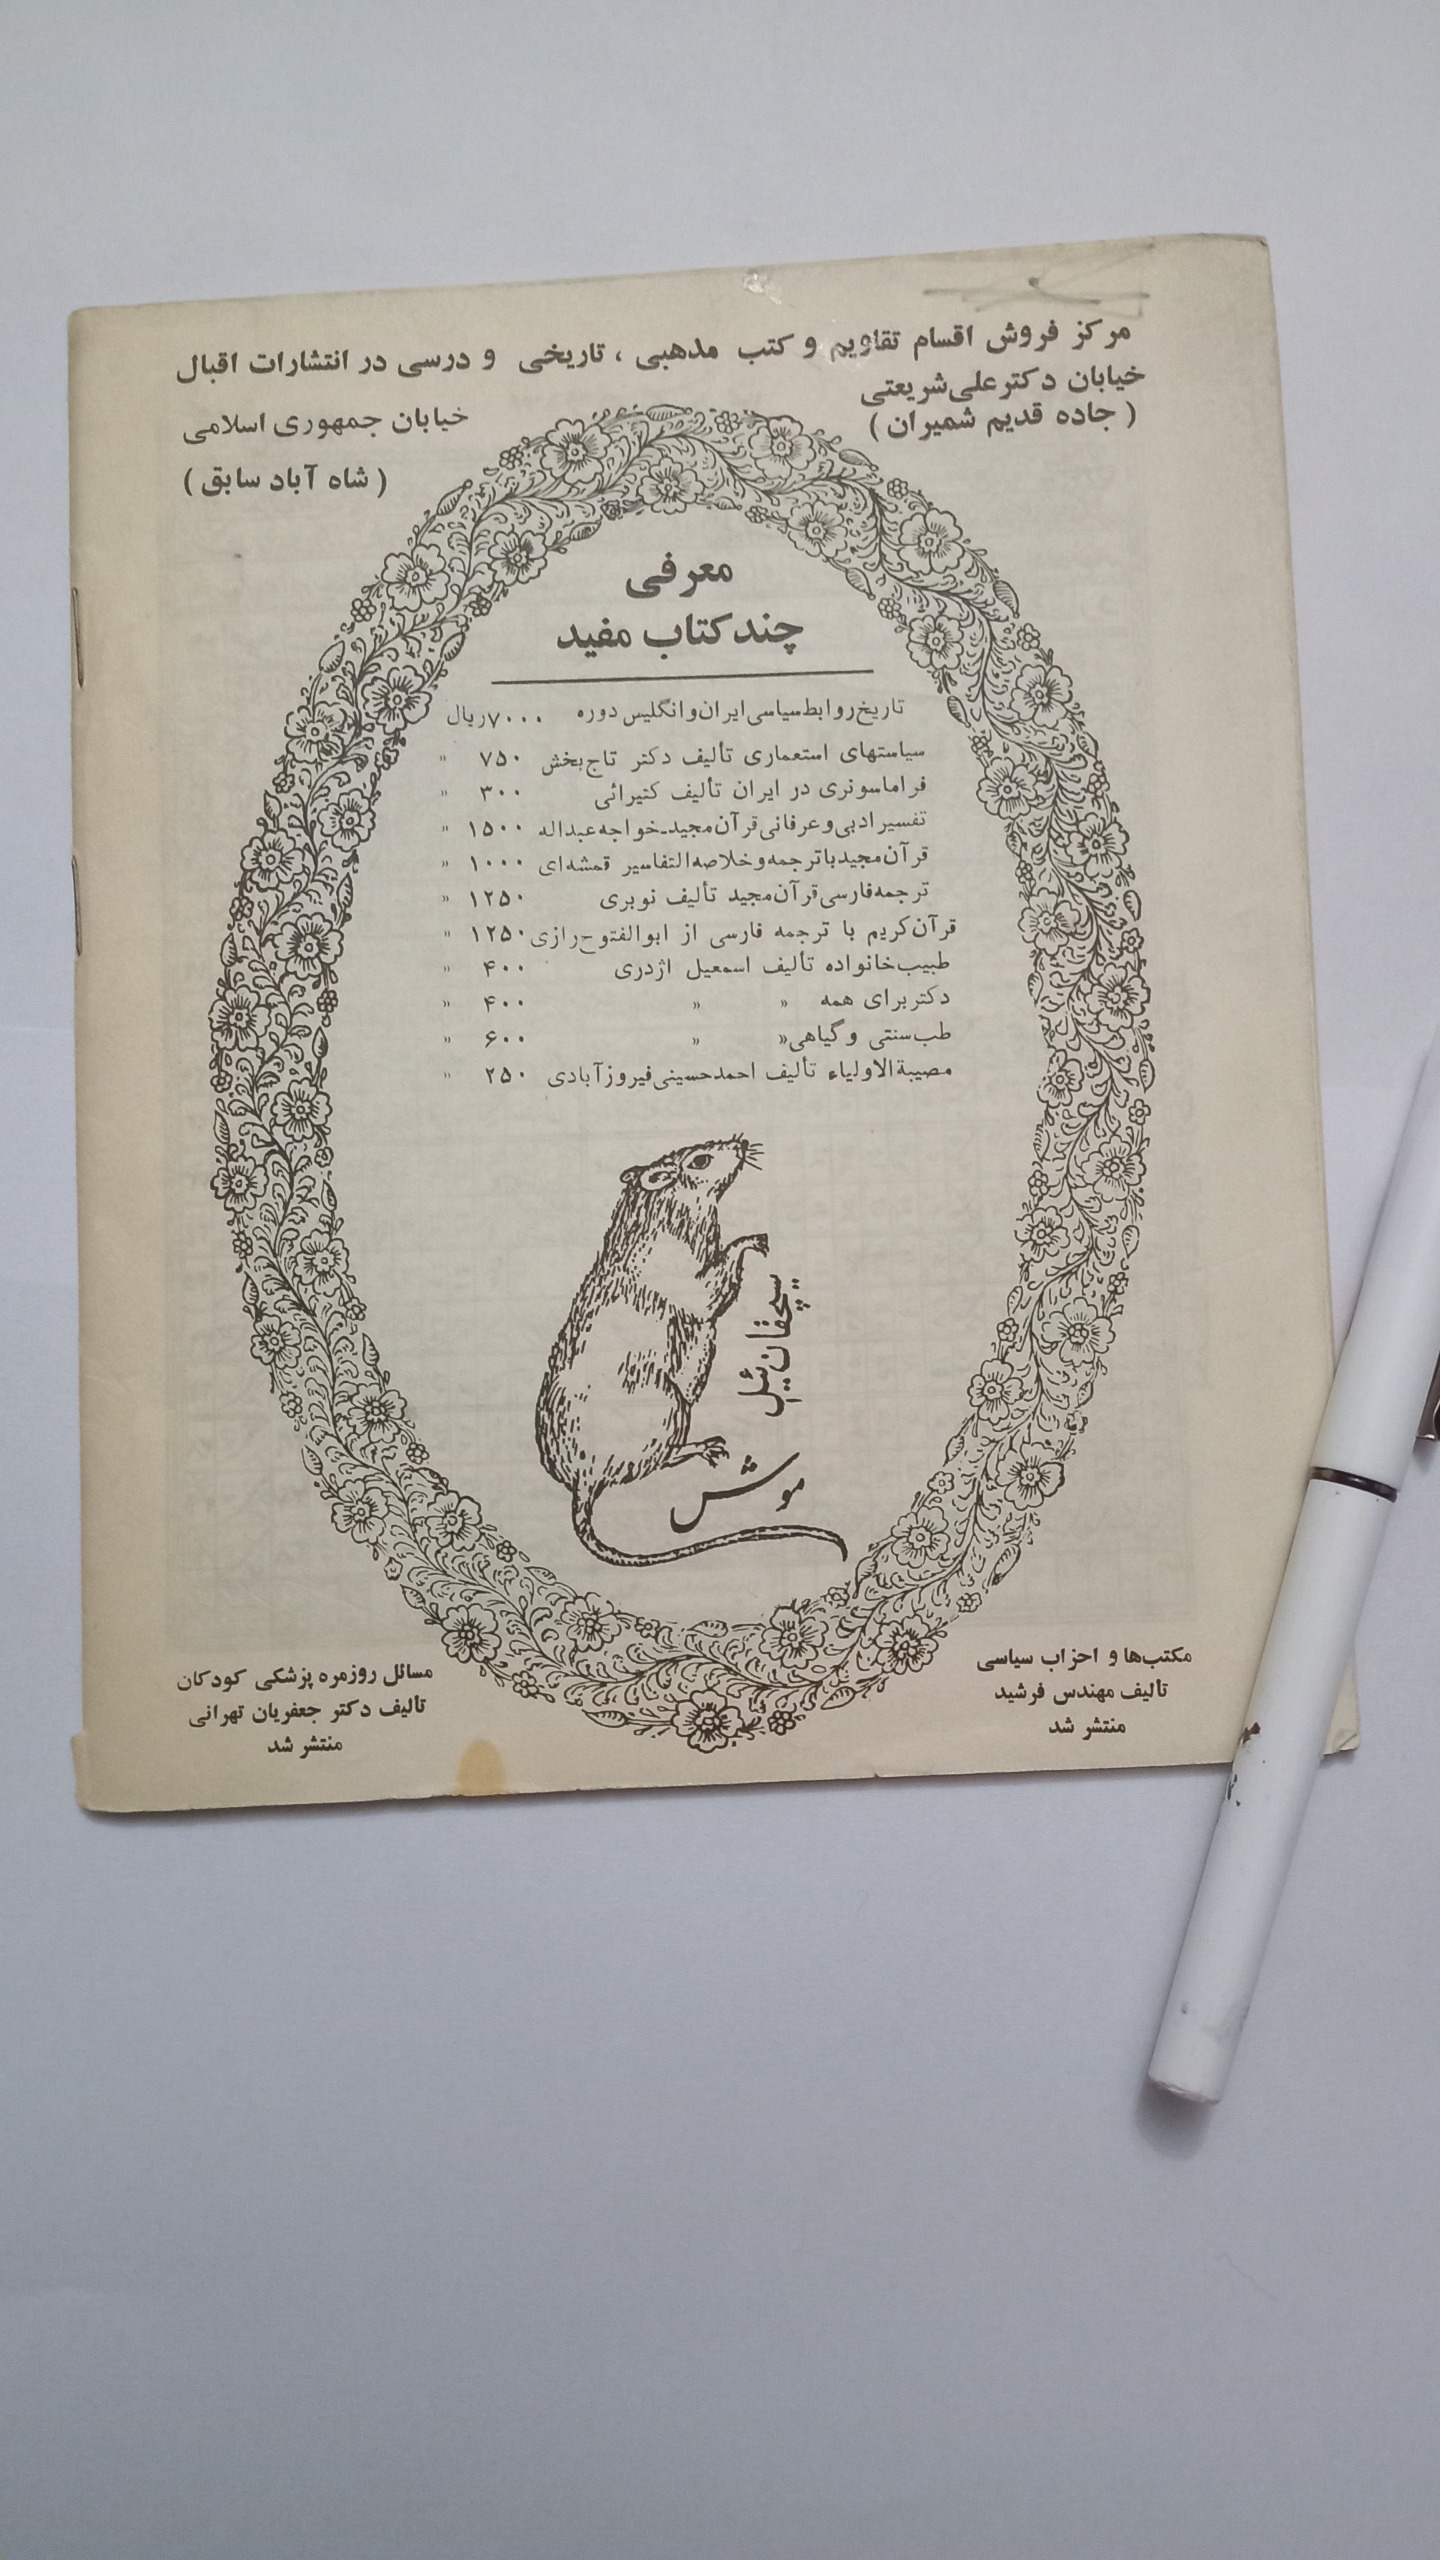 مرکز فروش اقسام تقاویم و کتب مذهبی ، تاریخی و درسی در انتشارات اقبال
خیابان دکتر علی شریعتی
( جاده قدیم شمیران )
خیابان جمهوری اسلامی
( شاه آباد سابق )
معرفی
چند کتاب مفید
تاریخ روابط سیاسی ایران و انگلیس دوره ۷۰۰۰ ریال
سیاستهای استعماری تألیف دکتر تاج بخش ۷۵۰ »
فراماسونری در ایران تألیف کتیرائی ۳۰۰ »
تفسیر ادبی و عرفانی قرآن مجید ـ خواجه عبداله ۱۵۰۰ »
قرآن مجید با ترجمه و خلاصه التفاسیر قمشه ای ۱۰۰۰ »
ترجمه فارسی قرآن مجید تألیف نوبری ۱۲۵۰ »
قرآن کریم با ترجمه فارسی از ابوالفتوح رازی ۱۲۵۰ »
طبیب خانواده تألیف اسمعیل اژدری ۴۰۰ »
دکتر برای همه » » ۴۰۰ »
طب سنتی و گیاهی » » ۶۰۰ »
مصیبة الاولیاء تألیف احمد حسینی فیروزآبادی ۲۵۰ »
سیچقان ئیل
موش
مکتب‌ها و احزاب سیاسی
تألیف مهندس فرشید
منتشر شد
مسائل روزمره پزشکی کودکان
تألیف دکتر جعفریان تهرانی
منتشر شد